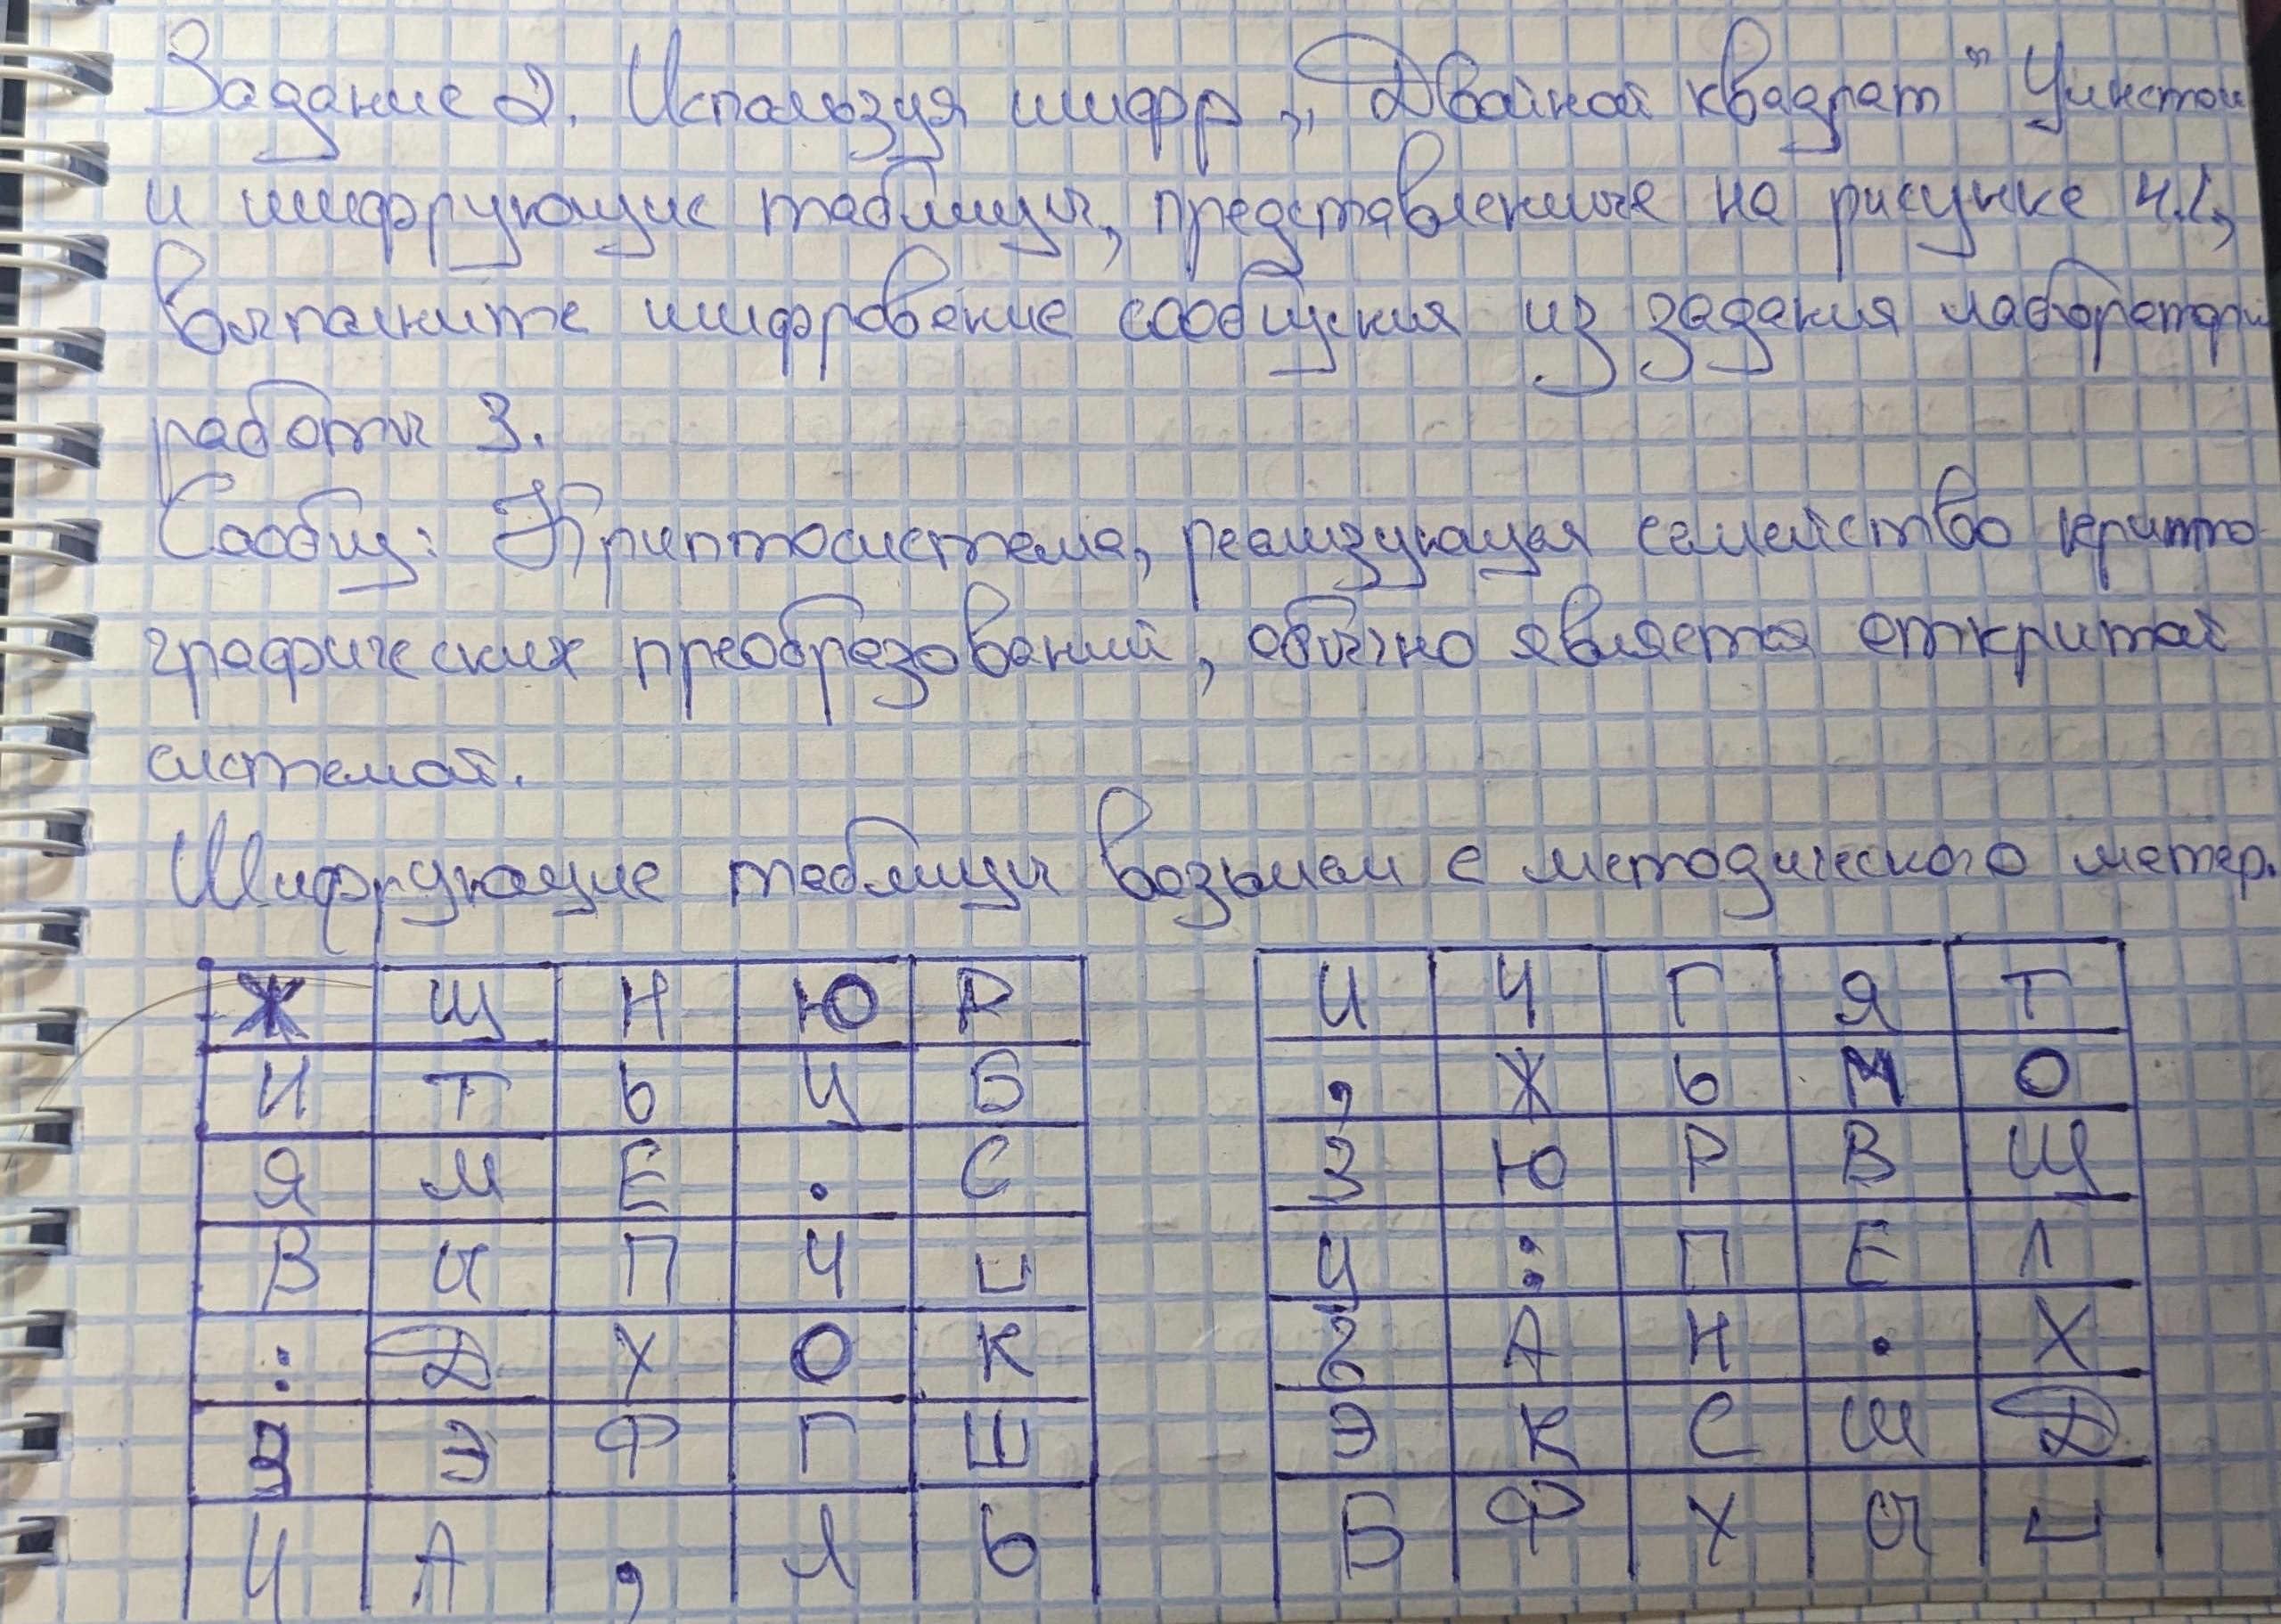 Задание 2. Используя шифр „Двойной квадрат" Уинстон
и шифрующие таблицы, представленные на рисунке 4.1,
выполните шифрование сообщения из задания лаборатори
работы 3.
Сообщ: Криптосистема, реализующая семейство крипто-
графических преобразований, обычно является открытой
системой.
Шифрующие таблицы возьмем с методического матер.
Ж Щ Н Ю Р И Ч Г Я Т
И Т Ь Ц Б , Ж Ь М О
Я М Е . С З Ю Р В Щ
В Ы П Ч ␣ Ц : П Е Л
: Д У О К А Н . Х
З Э Ф Г Ш Э К С Ш Д
А , Л Ь Б Ф У Ы ␣